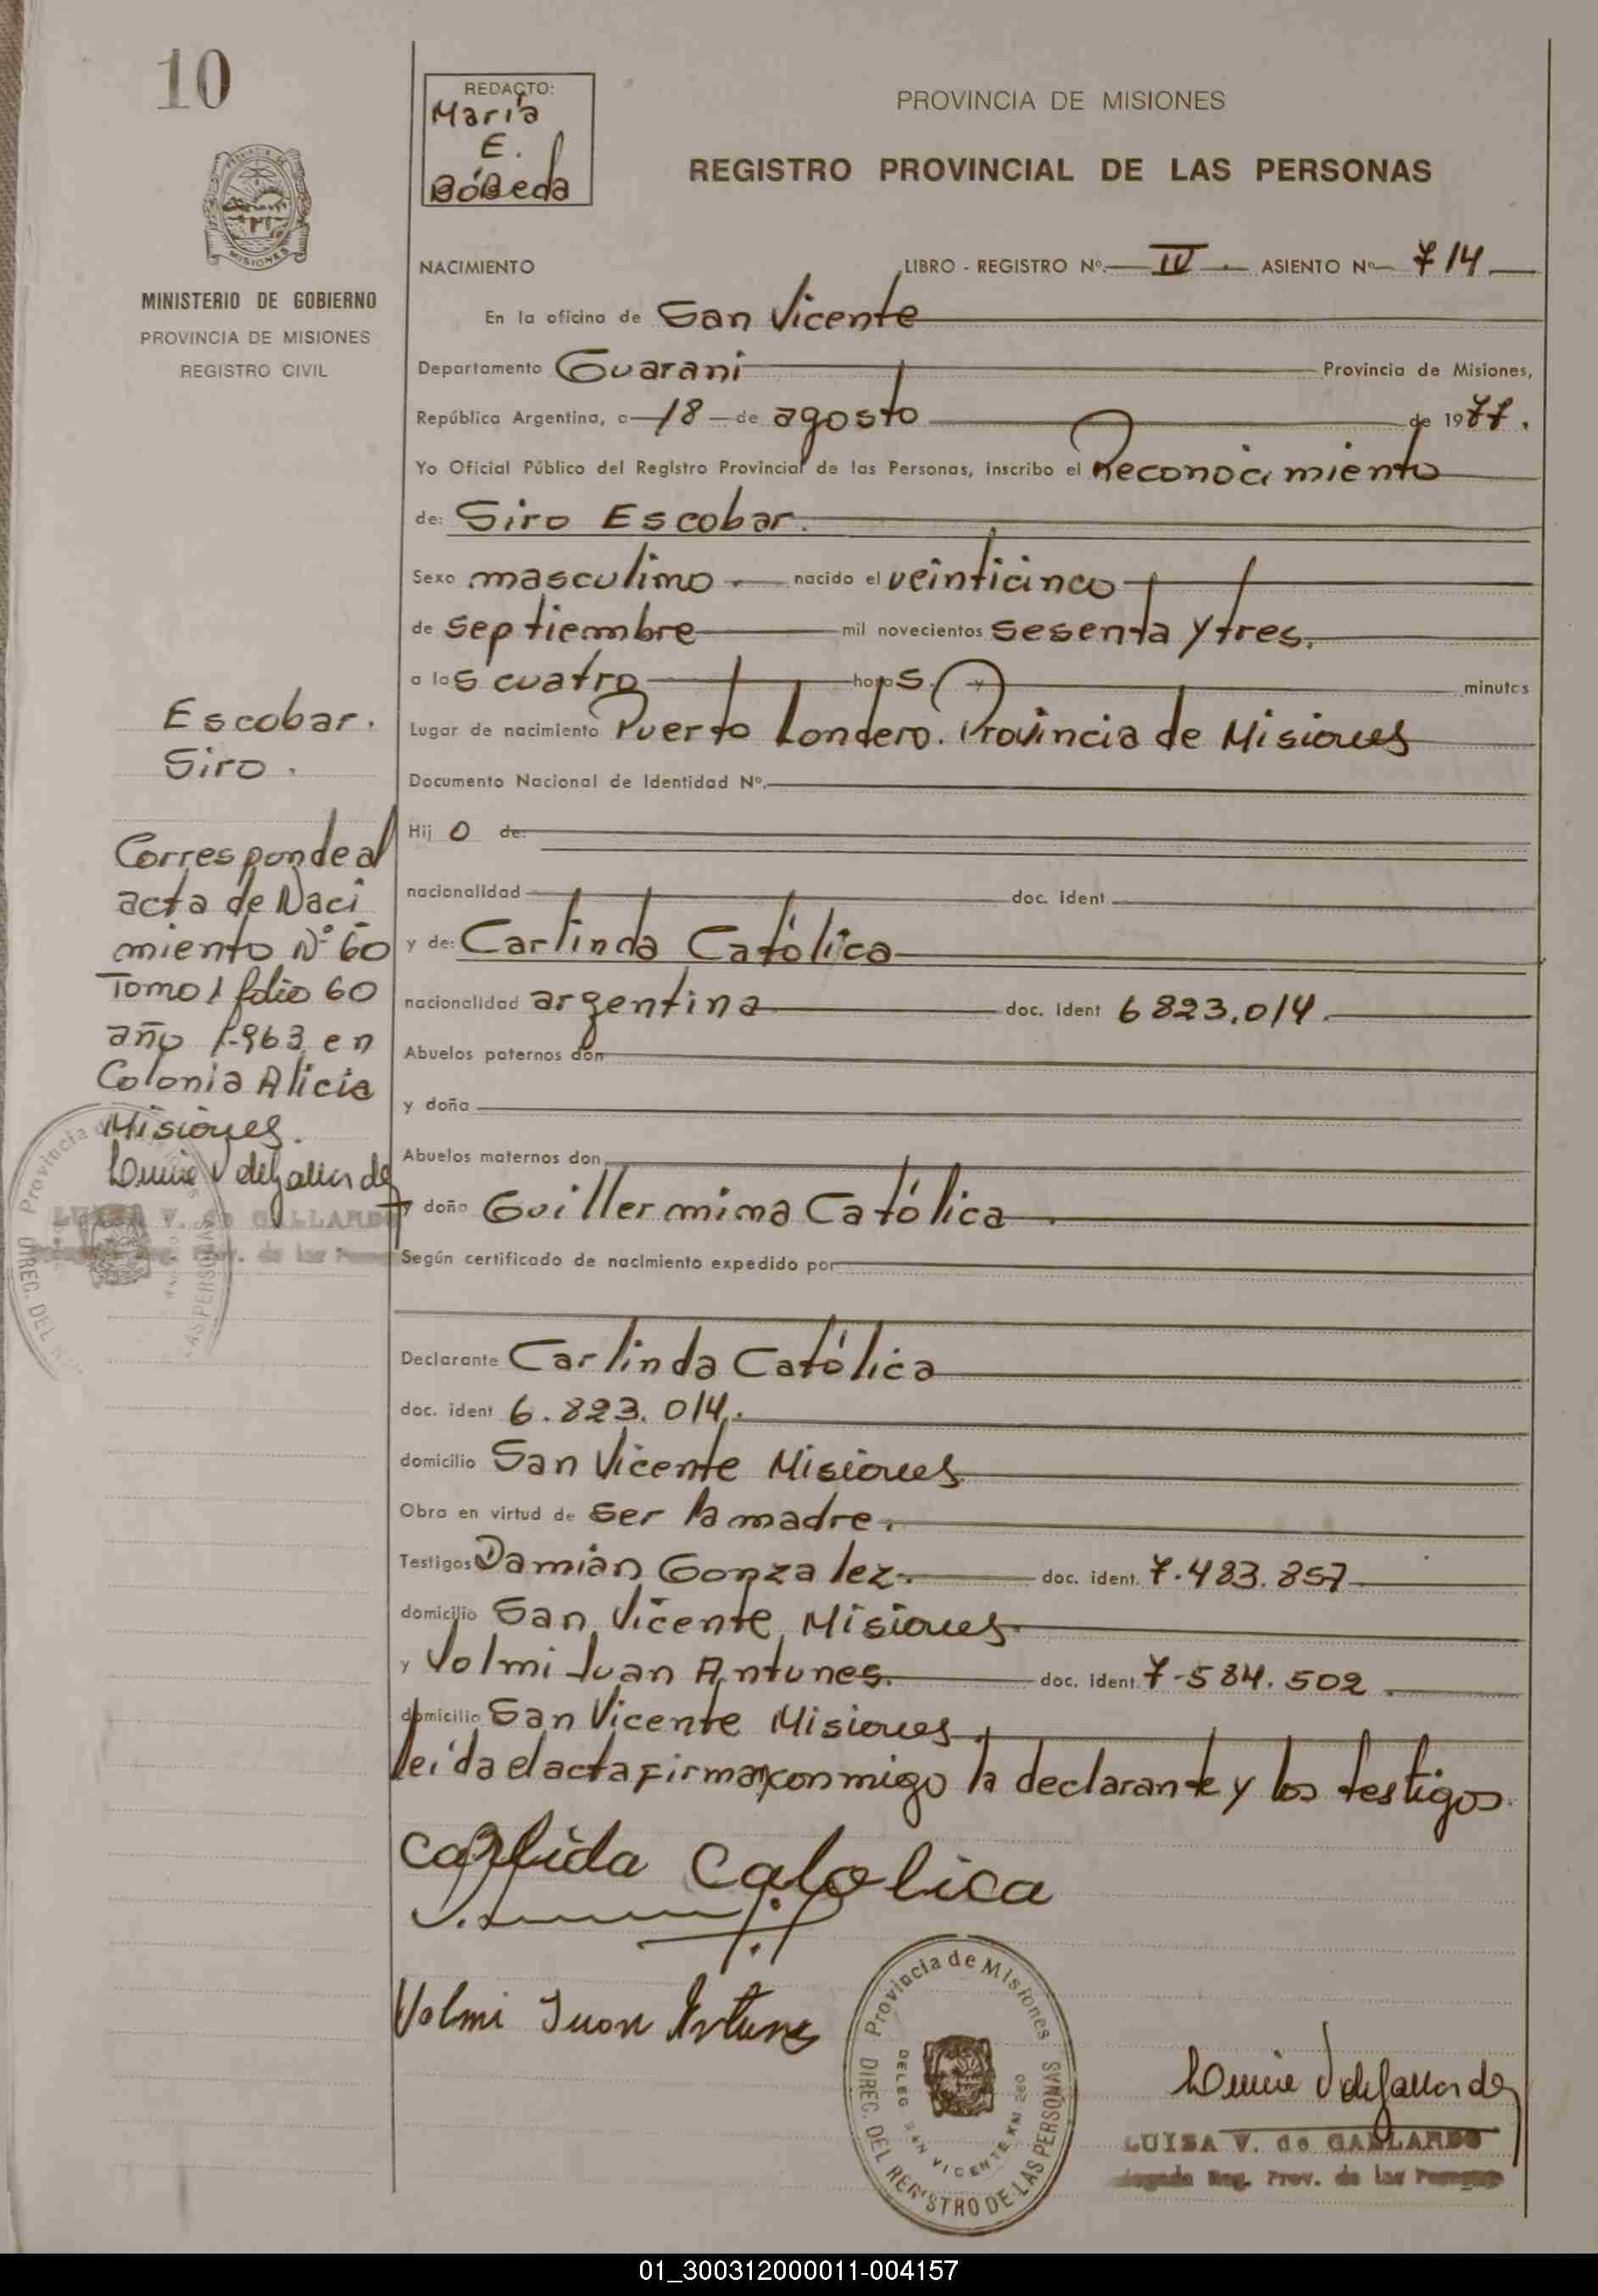 10
REDACTO:
María
E.
Bóbeda
PROVINCIA DE MISIONES
REGISTRO PROVINCIAL DE LAS PERSONAS
MISIONES
MINISTERIO DE GOBIERNO
PROVINCIA DE MISIONES
REGISTRO CIVIL
NACIMIENTO LIBRO - REGISTRO Nº. IV. ASIENTO Nº 714
En la oficina de San Vicente
Departamento Guarani Provincia de Misiones,
República Argentina, a 18 de agosto de 1977.
Yo Oficial Público del Registro Provincial de las Personas, inscribo el Reconocimiento
de: Siro Escobar.
Sexo masculino. nacido el veinticinco
de septiembre mil novecientos sesenta y tres.
a las cuatro horas. y minutos
Lugar de nacimiento Puerto Londero. Provincia de Misiones
Documento Nacional de Identidad Nº.
Hijo de:
nacionalidad doc. ident
y de: Carlinda Católica
nacionalidad argentina doc. ident 6823.014.
Abuelos paternos don
y doña
Abuelos maternos don
y doña Guillermina Católica.
Según certificado de nacimiento expedido por
Declarante Carlinda Católica
doc. ident 6.823.014.
domicilio San Vicente Misiones
Obra en virtud de ser la madre.
Testigos Damián Gonzalez. doc. ident. 7.483.857
domicilio San Vicente Misiones
y Volmi Juan Antunes. doc. ident. 7-584.502.
domicilio San Vicente Misiones.
leída el acta firman conmigo la declarante y los testigos.
Carlida Catolica
Volmi Juan Antunes
Provincia de Misiones
DIREC. DEL REGISTRO DE LAS PERSONAS
DELEG SAN VICENTE KM 260
LUISA V. de GALLARDO
Reg. Prov. de las Personas
Escobar.
Siro.
Corresponde al
acta de Naci
miento Nº 60
Tomo 1 folio 60
año 1.963 en
Colonia Alicia
Misiones.
LUISA V. de GALLARDO
Prov. de las
01_300312000011-004157